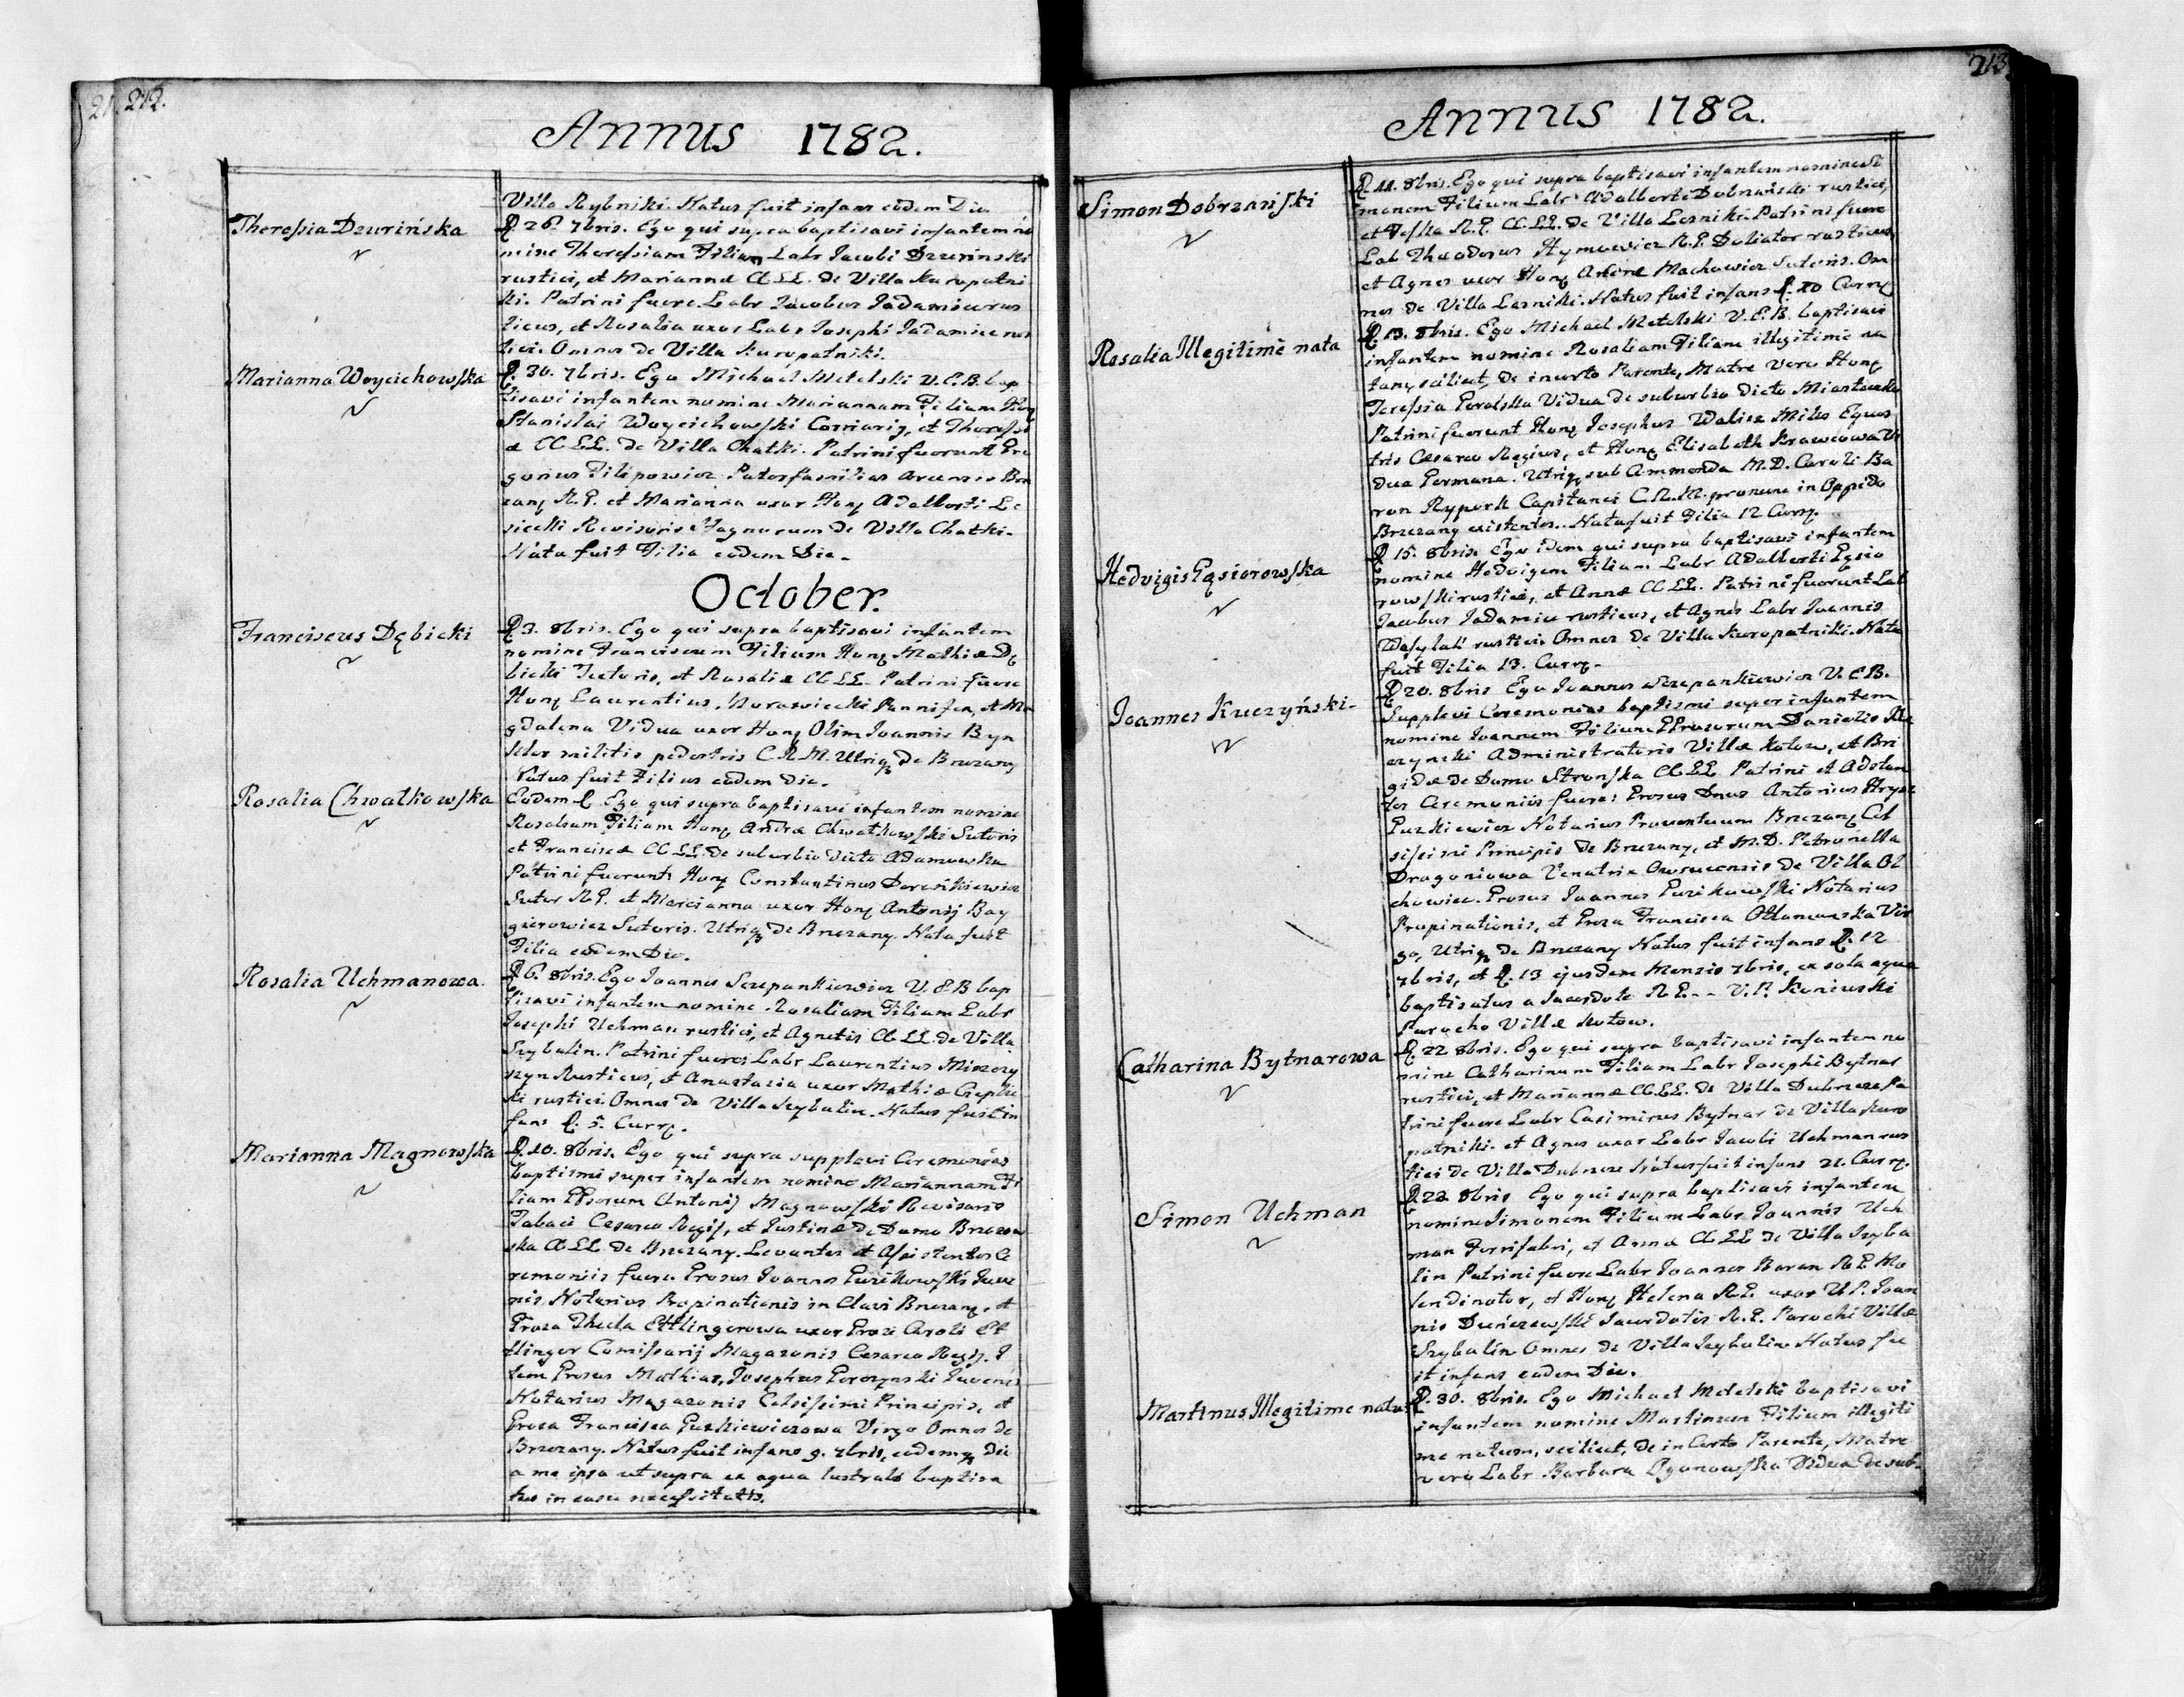 212.
Annus 1782.
Villa Rybniki. Natus fuit infans eodem Die.
Theressia Dzurińska
D 26. 7bris. Ego qui supra baptisavi infantem no
mine Theressiam Filiam Labr Jacobi Dzurinski
rustici, et Mariannæ CC.LL. de Villa Kuropatni
ki. Patrini fuere Labr Jacobus Jadamiec rus
ticus, et Rosalia uxor Labr Josephi Jadamiec rus
tici. Omnes de Villa Kuropatniki.
Marianna Woycichowska
D 30. 7bris. Ego Michael Metelski V.C.B. bap
tisavi infantem nomine Mariannam Filiam Hon
Stanislai Woycichowski et Theressi
æ CC LL. de Villa Chatki. Patrini fuerunt Gre
gorius Filipowicz Paterfamilias Brze
zany R.G. et Marianna uxor Hon Adalberti Le
sicelli Revisoris de Villa Chatki.
Nata fuit Filia eodem Die.
October.
Franciscus Dębicki
D 3. 8bris. Ego qui supra baptisavi infantem
nomine Franciscum Filium Hon Mathiæ Dę
bicki et Rosaliæ CC LL. Patrini fuere
Hon Laurentius Morawiecki Pannifex, et Ma
gdalena Vidua uxor Hon Olim Joannis Byn
militis pedestris C.R.M. Utriq de Brzezany
Natus fuit Filius eodem die.
Rosalia Chwałkowska
Eadem D Ego qui supra baptisavi infantem nomine
Rosaliam Filiam Hon Andræ Chwałkowski Sutoris
et Franciscæ CC LL. de suburbio dicto Adamowka
Patrini fuerunt Hon Constantinus
Sutor R.G. et Marianna uxor Hon Antonij Bay
gierowicz Sutoris. Utriq de Brzezany. Nata fuit
Filia eodem Die.
Rosalia Uchmanowa.
D 6. 8bris. Ego Joannes Szczepankiewicz V.C.B bap
tisavi infantem nomine Rosaliam Filiam Labr
Josephi Uchman rustici, et Agnetis CC LL. de Villa
Szybalin. Patrini fuere: Labr Laurentius Mierzy
Rusticus, et Anastazia uxor Mathiæ
ki rustici. Omnes de Villa Szybalin. Natus fuit in
fans D. 5. Curr.
Marianna Magnowska
D 10. 8bris. Ego qui supra supplevi Ceremonias
baptismi super infantem nomine Mariannam Fi
liam GGsorum Antonij Magnowski Revisoris
Tabaci Cesareo Regij, et Justinæ de Domo Brzozow
ska CC LL de Brzezany. Levantes et Assistentes Ce
remoniis fuere Grosus Joannes Guzikowski Juve
nis Notarius Propinationis in Clavi Brzezany, et
Grosa Thecla Ettlingerowa uxor Grosi Caroli Et
tlinger Comissarij Magazonis Cesareo Regij. I
tem Grosus Mathias, Josephus Juvenis
Notarius Magazonis Celsissimi Principis, et
Grosa Francisca Guzkiewiczowa Virgo Omnes de
Brzezany. Natus fuit infans 9. 7bris, eodemq die
a me ipso ut supra ex aqua lustrali baptisa
tus in casu necessitatis.
213
Annus 1782.
Simon Dobrzański
D 11. 8bris. Ego qui supra baptisavi infantem nomine Si
monem Filium Labr Adalberti Dobrzański rustici,
et R.G. CC.LL. de Villa Lesniki. Patrini fuere
Lab Theodorus Hymowicz R.G. Doliator rusticus,
et Agnes uxor Hon Andræ Machowicz Sutoris. Om
nes de Villa Lesniki. Natus fuit infans D. 10 Curr
Rosalia Illegitimè nata
D 13. 8bris. Ego Michael Metelski V.C.B. baptisavi
infantem nomine Rosaliam Filiam illegitime na
tam, scilicet, de incerto Parente, Matre vero Hon
Teressia Goralska Vidua de suburbio dicto Miasteczko
Patrini fuerunt Hon Josephus Walicz Miles Eques
tris Cesareo Regius, et Hon Elisabeth Krawcowa Vi
dua Germana. Utriq sub Ammenda M.D. Caroli Ba
ron Capitanei C.R.M. pronunc in Oppido
Brzezany existentes. Nata fuit Filia 12 Curr.
Hedvigis Gąsiorowska
D 15. 8bris. Ego idem qui supra baptisavi infantem
nomine Hedvigem Filiam Labr Adalberti Gąsio
rowski rustici, et Annæ CC LL. Patrini fuerunt Lab
Jacobus Jadamiec rusticus, et Agnes Labr Joannis
Wasylak rustici Omnes de Villa Kuropatniki. Nata
fuit Filia 13. Curr.
Joannes Kuczyński.
D 20. 8bris Ego Joannes Szczepankiewicz V.C.B.
Supplevi Ceremonias baptismi super infantem
nomine Joannem Filium GGrosorum Danielis Ku
czynski Administratoris Villæ Kotow, et Bri
gidæ de Domo Stronska CC LL Patrini et Adstan
tes Ceremoniis fuere: Grosus Dnus Antonius
Guzkiewicz Notarius Proventuum Brzezany Cel
sissimi Principis de Brzezany, et M.D. Petronella
Dragoniowa Venatrix Owrucensis de Villa Ol
chowiec. Grosus Joannes Guzikowski Notarius
Propinationis, et Grosa Francisca Vir
go, Utriq de Brzezany Natus fuit infans D. 12
7bris, et D. 13 ejusdem Mensis 7bris, ex sola aqua
baptisatus a Sacerdote R.G. - - V.P.
Parocho Villæ Kotow.
Catharina Bytnarowa
D 22 8bris. Ego qui supra baptisavi infantem no
mine Catharinam Filiam Labr Josephi Bytnar
rustici, et Mariannæ CC.LL. de Villa Dubszcze Pa
trini fuere Labr Casimirus Bytnar de Villa Kuro
patniki. et Agnes uxor Labr Jacobi Uchman rus
tici de Villa Dubszcze Natus fuit infans 21. Curr.
Simon Uchman
D 23 8bris Ego qui supra baptisavi infantem
nomine Simonem Filium Labr Joannis Uch
man Ferrifabri, et Annæ CC LL de Villa Szyba
lin Patrini fuere Labr Joannes Baran R.G. Mo
lendinator, et Hon Helena R.G. uxor V.P. Joan
nis Sacerdotis R.G. Parochi Villæ
Szybalin Omnes de Villa Szybalin Natus fu
it infans eodem Die.
Martinus Illegitime natus
D. 30. 8bris. Ego Michael Metelski baptisavi
infantem nomine Martinum Filium illegiti
me natum, scilicet, de incerto Parente, Matre
vero Labr Barbara Vidua de sub-